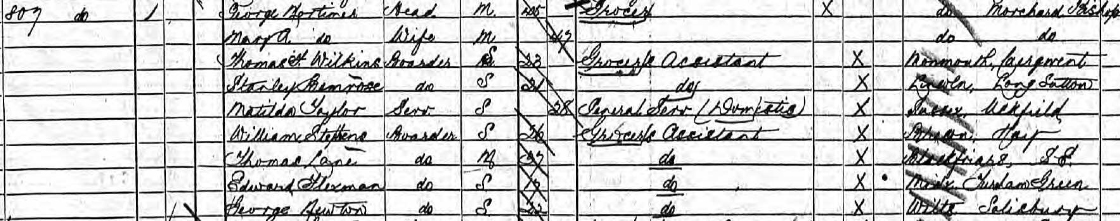 807 do 1 George Mortimer Head M Grocer X do Morchard Bishop
Mary A. do Wife M 47 do do
Thomas H Wilkins Boarder S 23 Grocer's Assistant X Monmouth,
Stanley Bemrose do S 21 do X Lincoln, Long Sutton
Matilda Taylor Serv S 28 General Serv (Domestic) X Sussex Uckfield
William Stephens Boarder S 26 Grocer's Assistant X
Thomas Lane do 27 do X Blackfriars, S.E.
Edward Flexman do S do X Turnham Green
George Newton do S do X Wilts Salisbury